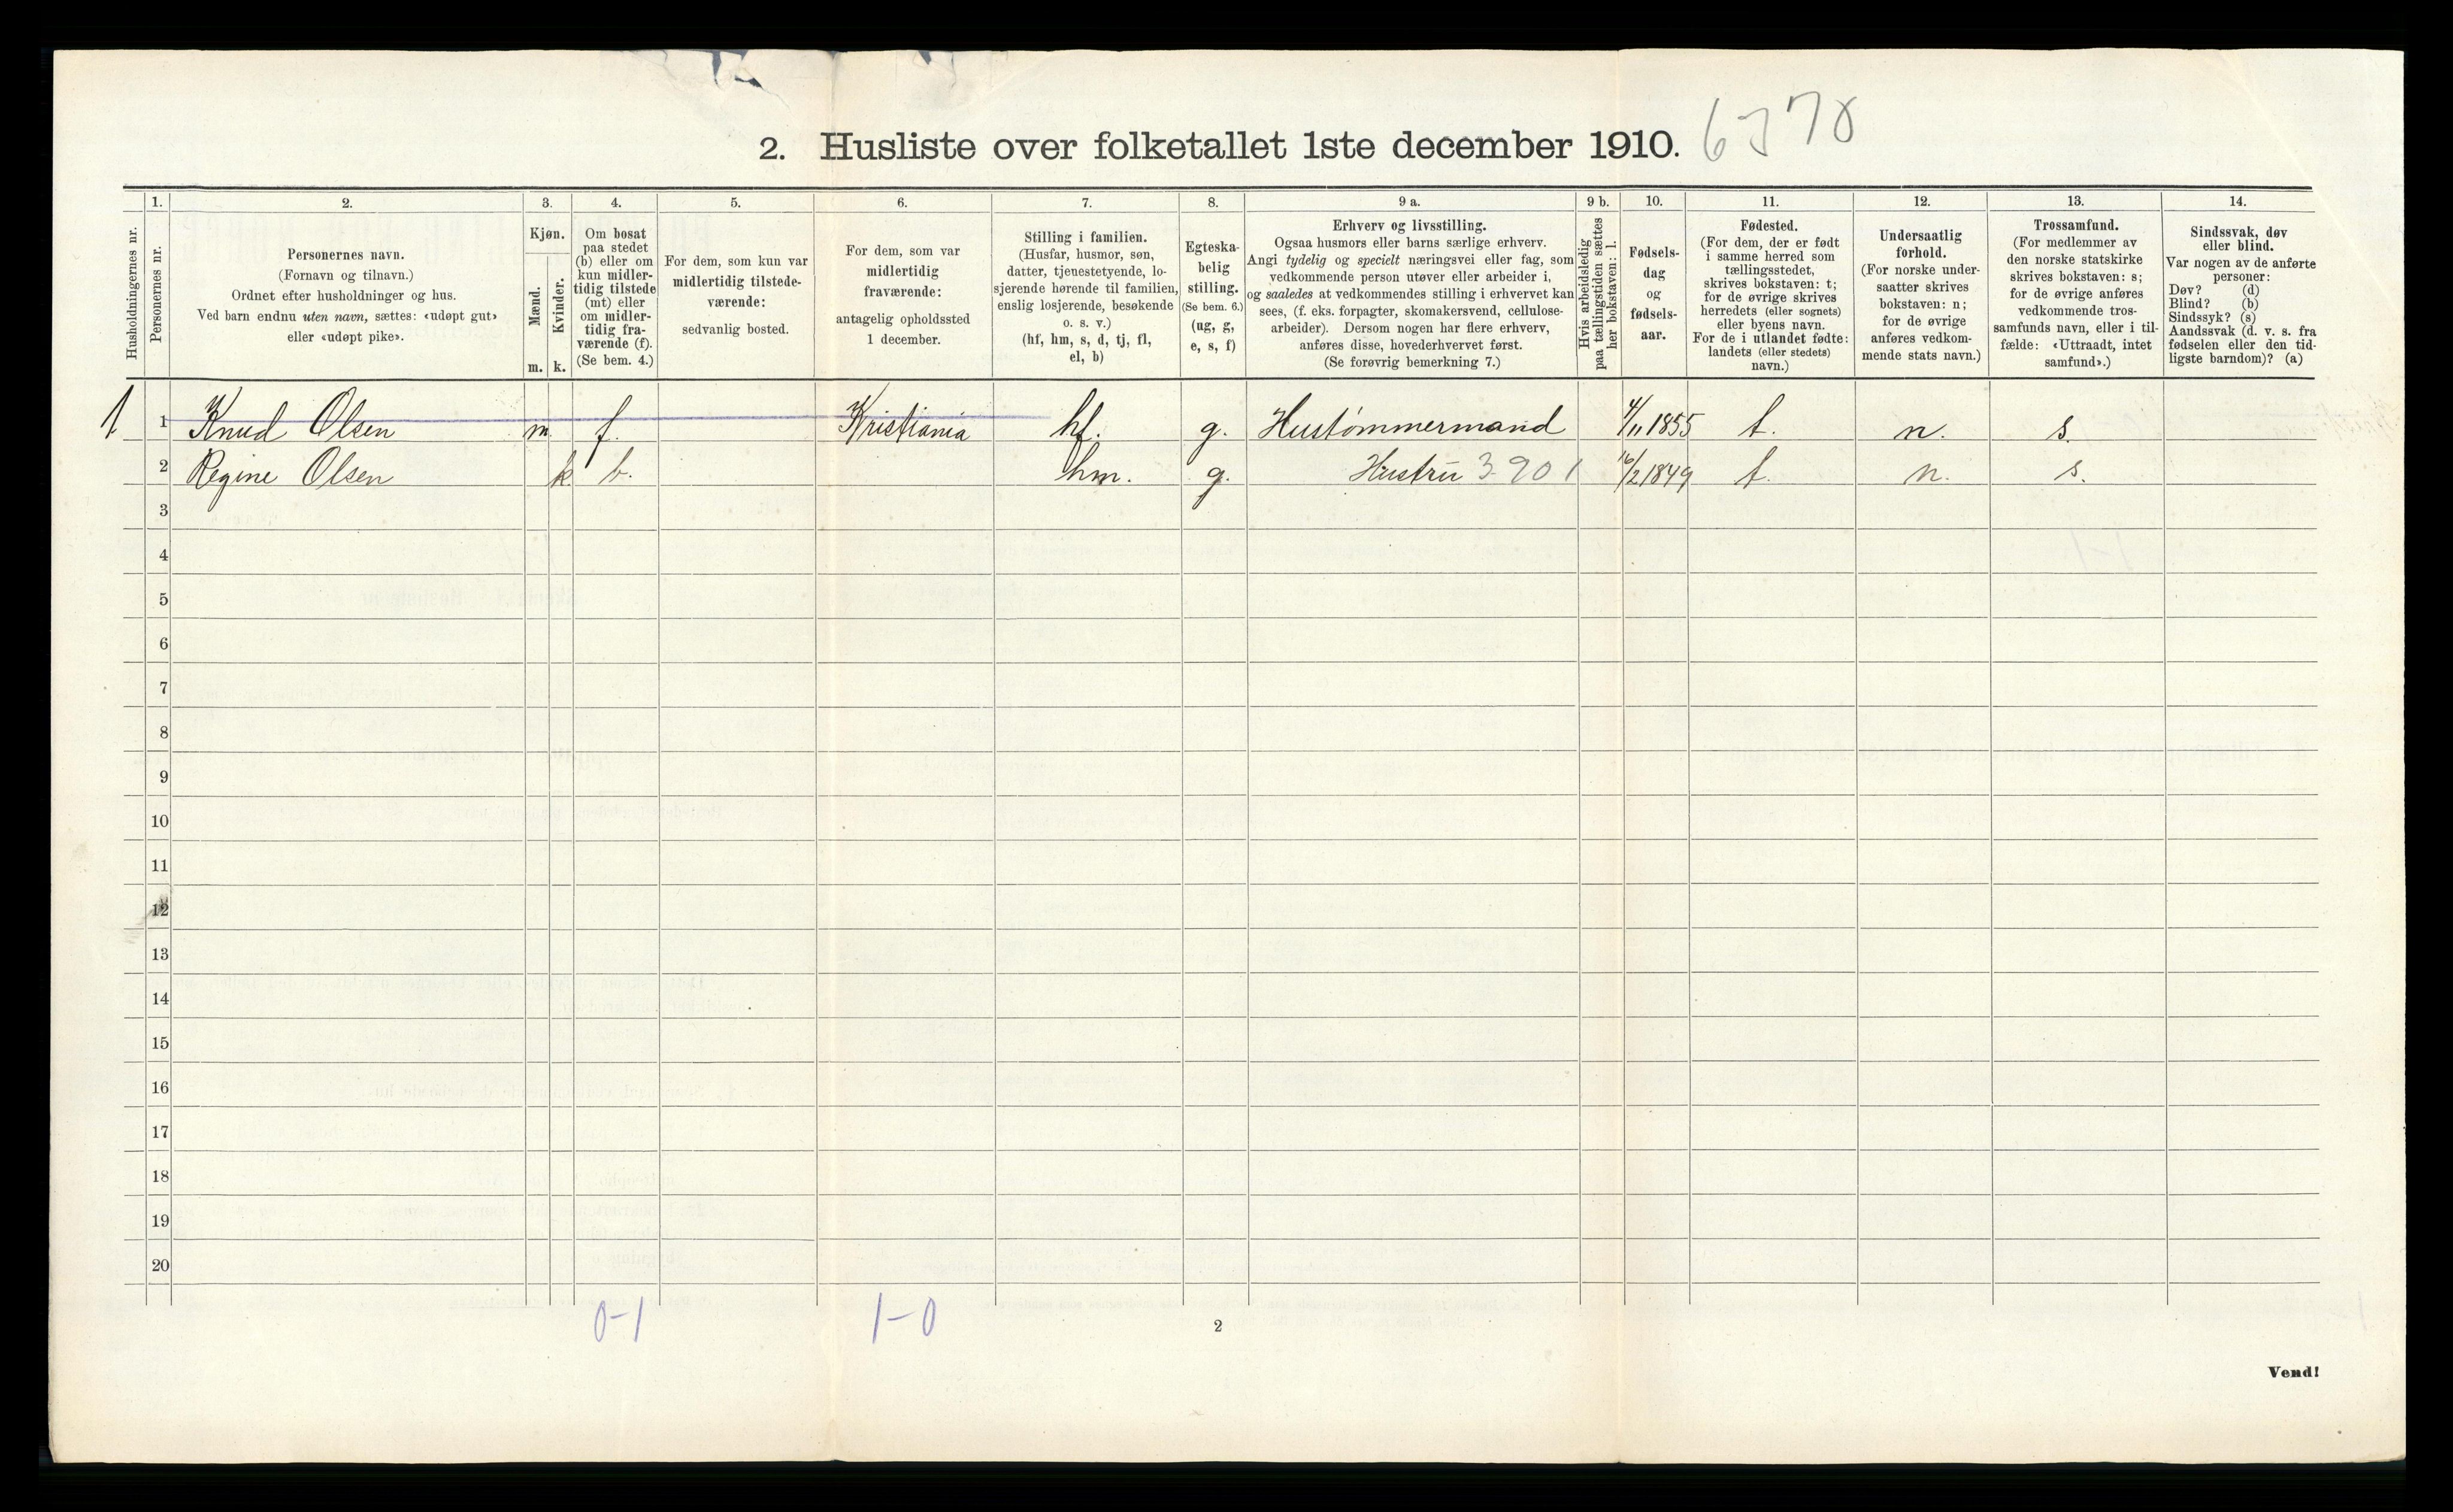 2. Husliste over folketallet 1ste december 1910.
Husholdningernes nr.
1.
Personernes nr.
2.
Personernes navn.
(Fornavn og tilnavn.)
Ordnet efter husholdninger og hus.
Ved barn endnu uten navn, sættes: «udøpt gut»
eller «udøpt pike».
3.
Kjøn.
Mænd.
m.
Kvinder.
k.
4.
Om bosat
paa stedet
(b) eller om
kun midler-
tidig tilstede
(mt) eller
om midler-
tidig fra-
værende (f).
(Se bem. 4.)
5.
For dem, som kun var
midlertidig tilstede-
værende:
sedvanlig bosted.
6.
For dem, som var
midlertidig
fraværende:
antagelig opholdssted
1 december.
7.
Stilling i familien.
(Husfar, husmor, søn,
datter, tjenestetyende, lo-
sjerende hørende til familien,
enslig losjerende, besøkende
o. s. v.)
(hf, hm, s, d, tj, fl,
el, b)
8.
Egteska-
belig
stilling.
(Se bem. 6.)
(ug, g,
e, s, f)
9 a.
Erhverv og livsstilling.
Ogsaa husmors eller barns særlige erhverv.
Angi tydelig og specielt næringsvei eller fag, som
vedkommende person utøver eller arbeider i,
og saaledes at vedkommendes stilling i erhvervet kan
sees, (f. eks. forpagter, skomakersvend, cellulose-
arbeider). Dersom nogen har flere erhverv,
anføres disse, hovederhvervet først.
(Se forøvrig bemerkning 7.)
9 b.
Hvis arbeidsledig
paa tællingstiden sættes
her bokstaven: l.
10.
Fødsels-
dag
og
fødsels-
aar.
11.
Fødested.
(For dem, der er født
i samme herred som
tællingsstedet,
skrives bokstaven: t;
for de øvrige skrives
herredets (eller sognets)
eller byens navn.
For de i utlandet fødte:
landets (eller stedets)
navn.)
12.
Undersaatlig
forhold.
(For norske under-
saatter skrives
bokstaven: n;
for de øvrige
anføres vedkom-
mende stats navn.)
13.
Trossamfund.
(For medlemmer av
den norske statskirke
skrives bokstaven: s;
for de øvrige anføres
vedkommende tros-
samfunds navn, eller i til-
fælde: «Uttraadt, intet
samfund».)
14.
Sindssvak, døv
eller blind.
Var nogen av de anførte
personer:
Døv? (d)
Blind? (b)
Sindssyk? (s)
Aandssvak (d. v. s. fra
fødselen eller den tid-
ligste barndom)? (a)
1 1 Knud Olsen m. f. Kristiania hf. g. Hustømmermand 4/11 1855 t. n. s.
2 Regine Olsen k. b. hm. g. Hustru 3901 16/2 1849 t. n. s.
3
4
5
6
7
8
9
10
11
12
13
14
15
16
17
18
19
20
0-1 1-0
2
Vend!